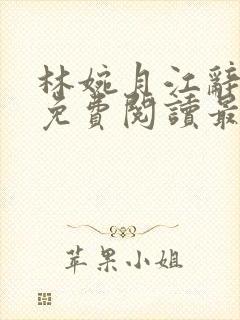 林婉月江辭
免費閱讀最
苹果小姐